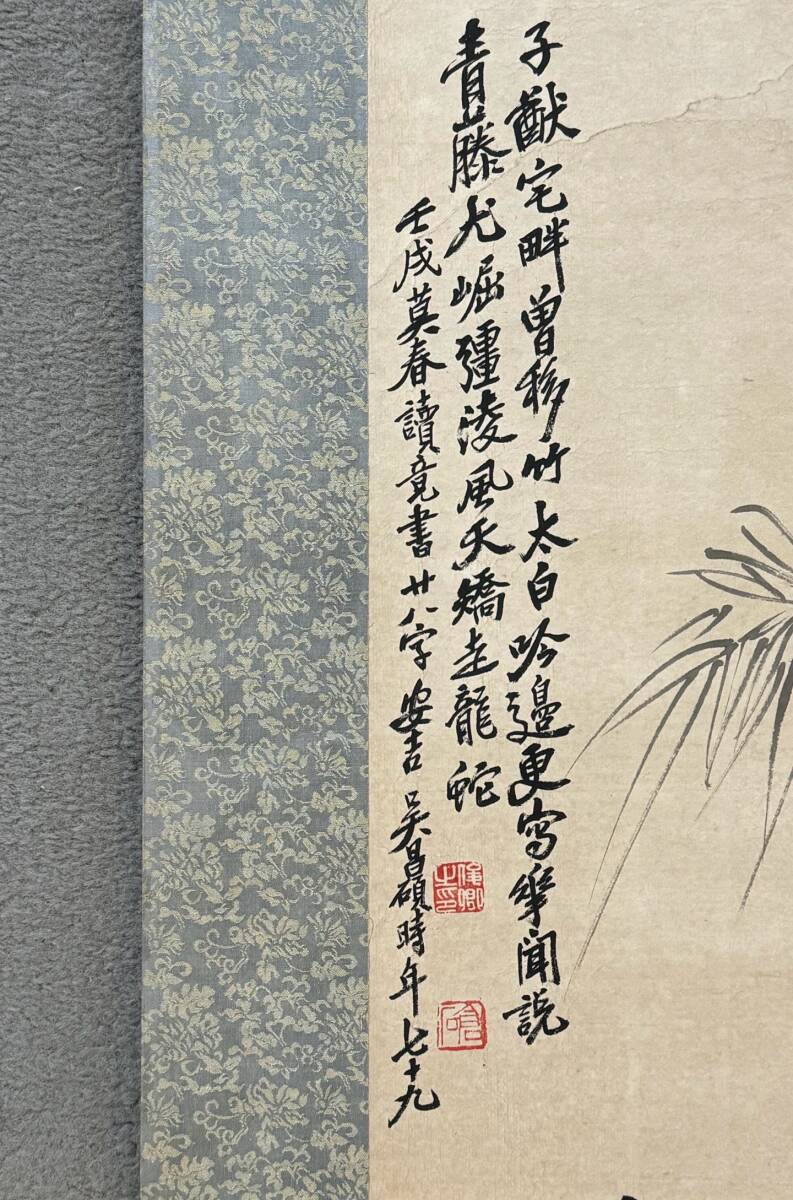 子猷宅畔曾移竹太白吟邊更寫華聞說
青藤尤崛彊淩風夭矯走龍蛇
壬戌莫春讀竟書廿八字安吉吳昌碩時年七十九
俊卿之印